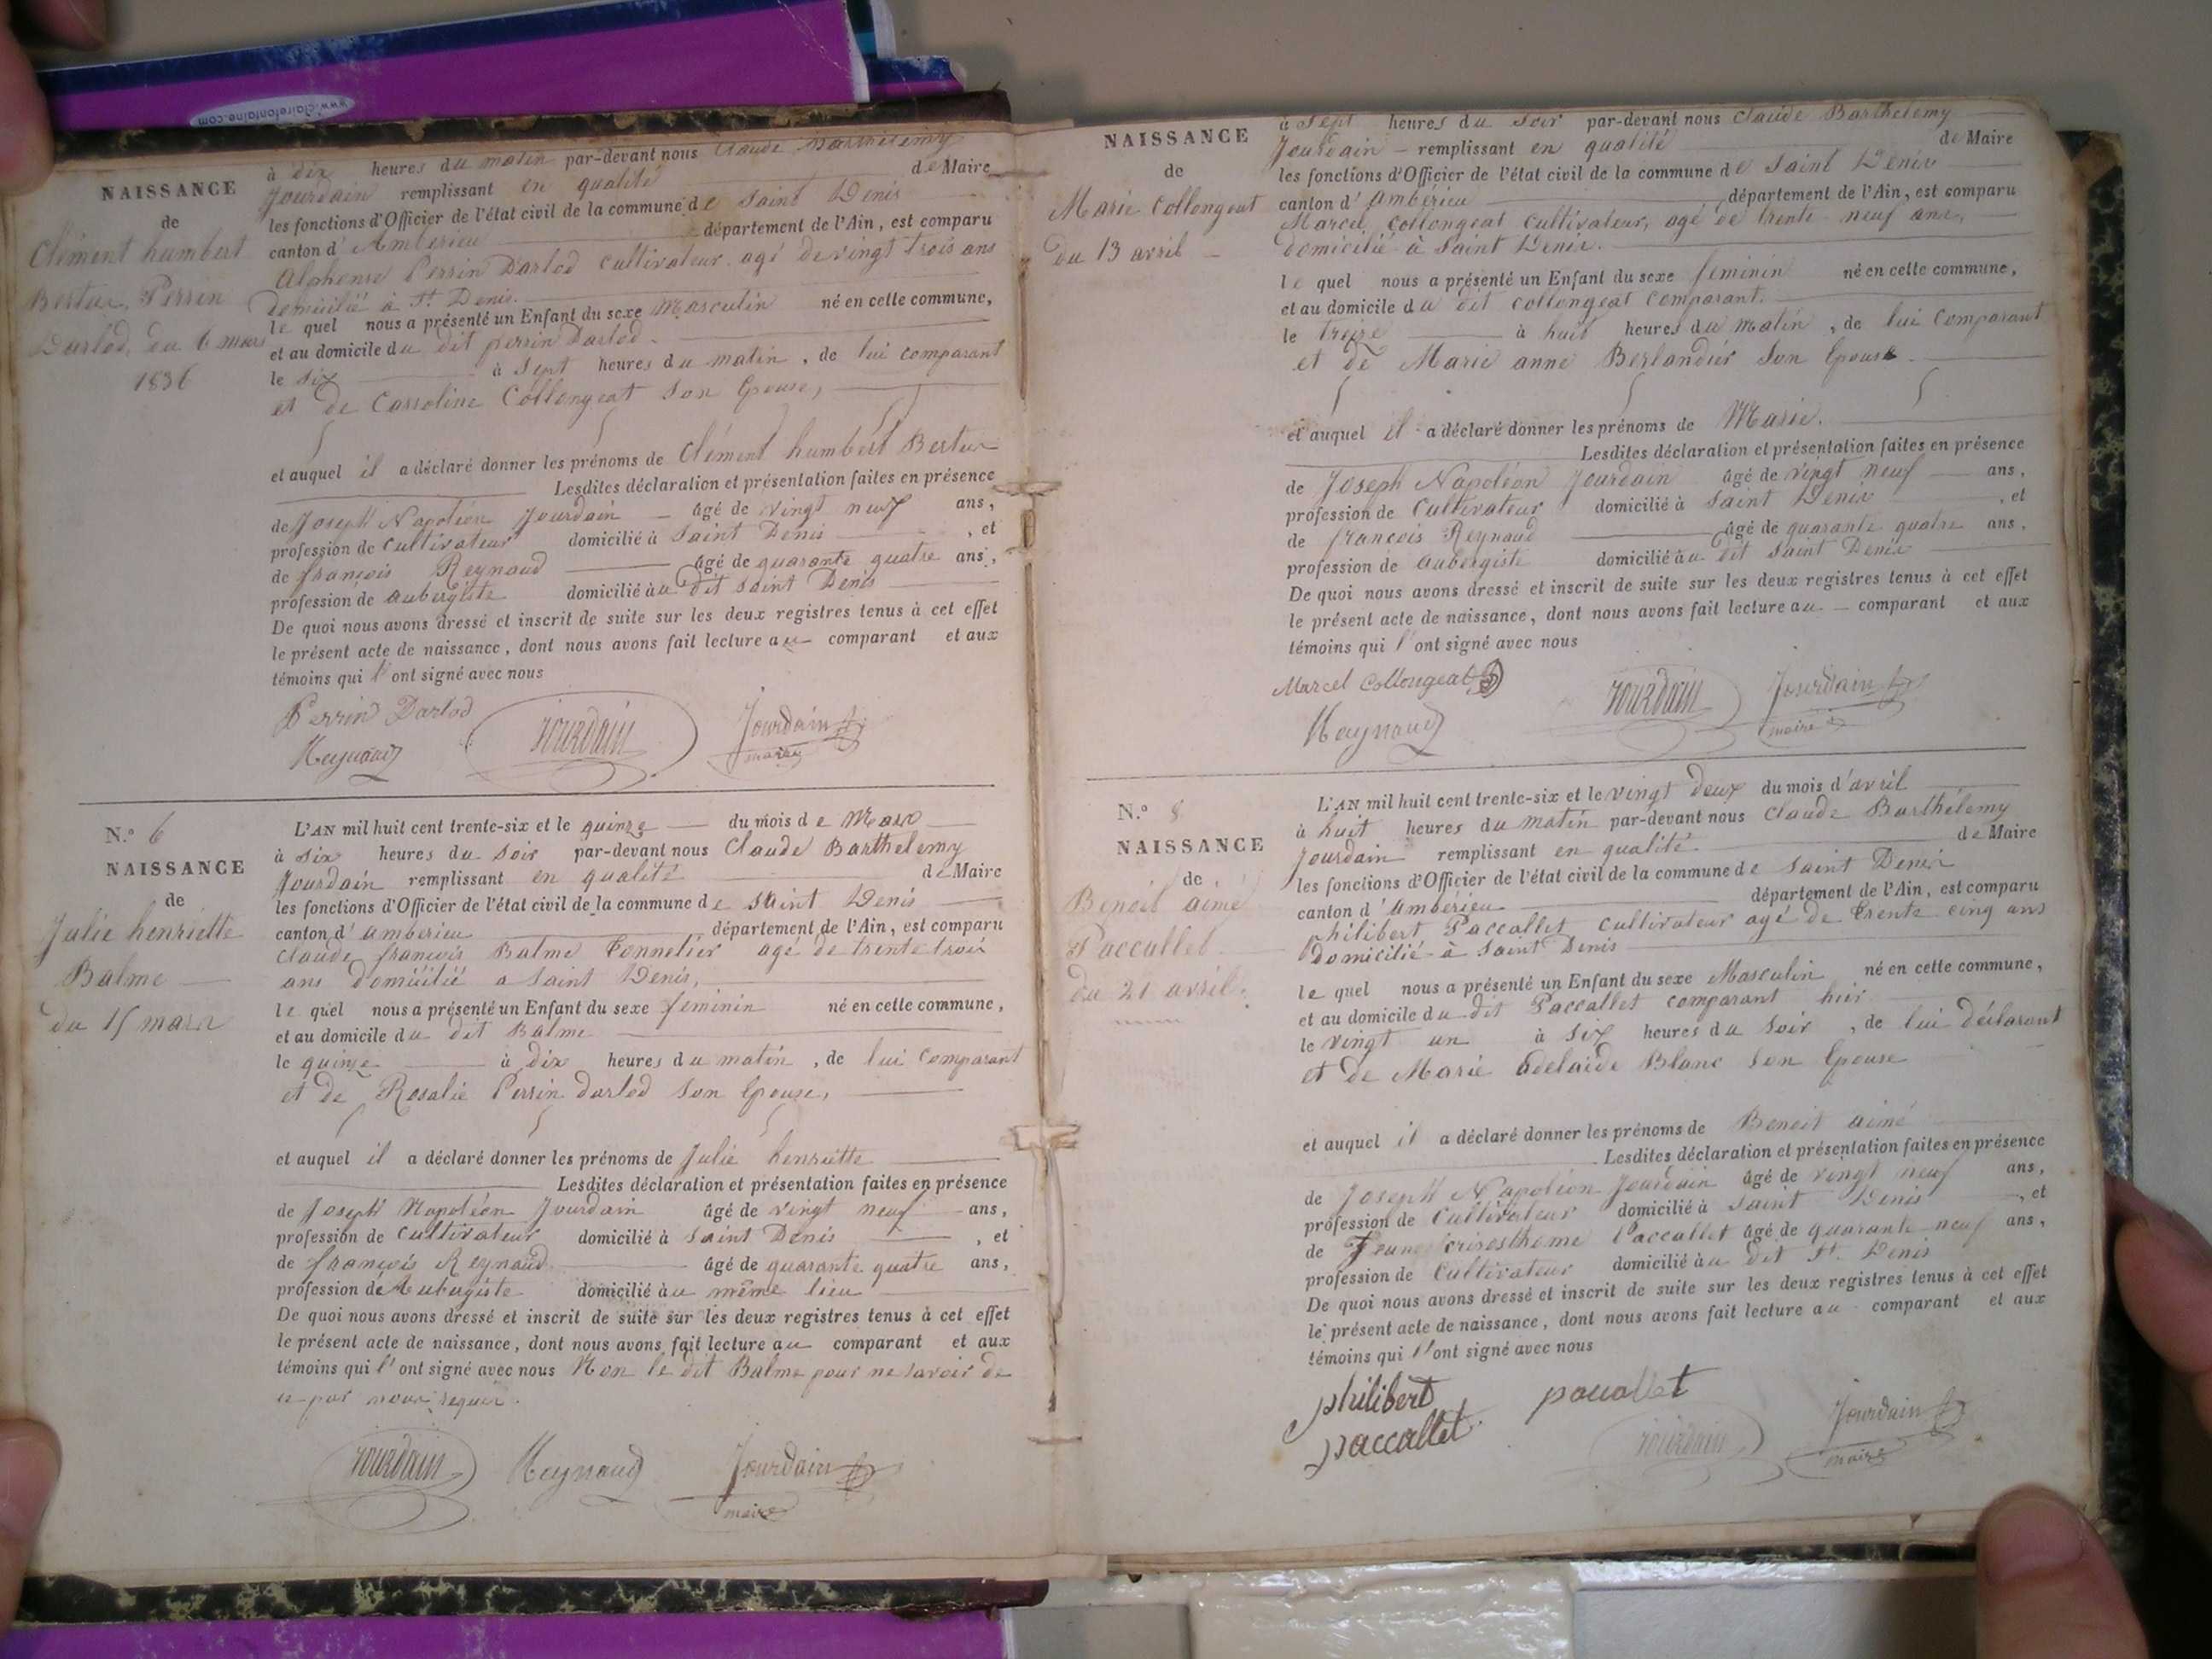 www.clairefontaine.com
NAISSANCE
de
Clément humbert
Bertin Perrin
Darlod, du 6 mars
1836
à dix heures du matin par-devant nous Claude Barthelemy
Jourdain remplissant en qualité de Maire
les fonctions d'Officier de l'état civil de la commune de Saint Denis
canton d'Ambérieu département de l'Ain, est comparu
Alphonse Perrin Darlod cultivateur agé de vingt trois ans
domicilié à St. Denis.
le quel nous a présenté un Enfant du sexe Masculin né en cette commune,
et au domicile du dit perrin Darlod.
le six à sept heures du matin, de lui comparant
et de Carroline Collongeat son Epouse,
et auquel il a déclaré donner les prénoms de Clément humbert
Lesdites déclaration et présentation faites en présence
de Joseph Napoléon Jourdain âgé de vingt neuf ans,
profession de Cultivateur domicilié à Saint Denis, et
de françois Reynaud âgé de quarante quatre ans,
profession de aubergiste domicilié au dit Saint Denis
De quoi nous avons dressé et inscrit de suite sur les deux registres tenus à cet effet
le présent acte de naissance, dont nous avons fait lecture au comparant et aux
témoins qui l'ont signé avec nous
Perrin Darlod
Reynaud Jourdain Jourdain
maire
N.° 6
NAISSANCE
de
Julie henriette
Balme
du 15 mars
L'AN mil huit cent trente-six et le quinze du mois de Mars
à six heures du soir par-devant nous Claude Barthelemy
Jourdain remplissant en qualité de Maire
les fonctions d'Officier de l'état civil de la commune de Saint Denis
canton d'ambérieu département de l'Ain, est comparu
Claude françois Balme Tonnelier agé de trente trois
ans domicilié a Saint Denis,
le quel nous a présenté un Enfant du sexe feminin né en cette commune,
et au domicile du dit Balme
le quinze à dix heures du matin, de lui comparant
et de Rosalie Perrin darlod son Epouse,
et auquel il a déclaré donner les prénoms de Julie henriette
Lesdites déclaration et présentation faites en présence
de Joseph Napoléon Jourdain âgé de vingt neuf ans,
profession de Cultivateur domicilié à Saint Denis, et
de françois Reynaud âgé de quarante quatre ans,
profession de Aubergiste domicilié au même lieu
De quoi nous avons dressé et inscrit de suite sur les deux registres tenus à cet effet
le présent acte de naissance, dont nous avons fait lecture au comparant et aux
témoins qui l'ont signé avec nous Non le dit Balme pour ne savoir de
ce par nous requis.
Jourdain Reynaud Jourdain
maire
NAISSANCE
de
Marie Collongeat
du 13 avril
à sept heures du soir par-devant nous Claude Barthelemy
Jourdain remplissant en qualité de Maire
les fonctions d'Officier de l'état civil de la commune de Saint Denis
canton d'Ambérieu département de l'Ain, est comparu
Marcel Collongeat cultivateur, agé de trente neuf ans,
domicilié à Saint Denis.
le quel nous a présenté un Enfant du sexe feminin né en cette commune,
et au domicile du dit Collongeat comparant.
le treize à huit heures du matin, de lui comparant
et de Marie anne Berlandier son Epouse.
et auquel il a déclaré donner les prénoms de Marie.
Lesdites déclaration et présentation faites en présence
de Joseph Napoléon Jourdain âgé de vingt neuf ans,
profession de Cultivateur domicilié à Saint Denis, et
de françois Reynaud âgé de quarante quatre ans,
profession de aubergiste domicilié au dit Saint Denis
De quoi nous avons dressé et inscrit de suite sur les deux registres tenus à cet effet
le présent acte de naissance, dont nous avons fait lecture au comparant et aux
témoins qui l'ont signé avec nous
Marcel Collongeat Jourdain Jourdain
Reynaud maire
N.° 8
NAISSANCE
de
Benoit aimé
Paccallet
du 21 avril.
L'AN mil huit cent trente-six et le vingt deux du mois d'avril
à huit heures du matin par-devant nous Claude Barthélemy
Jourdain remplissant en qualité de Maire
les fonctions d'Officier de l'état civil de la commune de Saint Denis
canton d'Ambérieu département de l'Ain, est comparu
philibert Paccallet cultivateur agé de trente cinq ans
domicilié à Saint Denis
le quel nous a présenté un Enfant du sexe Masculin né en cette commune,
et au domicile du dit Paccallet comparant hier
le vingt un à six heures du soir, de lui déclarant
et de Marie adelaide Blanc son Epouse
et auquel il a déclaré donner les prénoms de Benoit aimé
Lesdites déclaration et présentation faites en présence
de Joseph Napoléon Jourdain âgé de vingt neuf ans,
profession de Cultivateur domicilié à Saint Denis, et
de Paccallet âgé de quarante neuf ans,
profession de Cultivateur domicilié au dit St. Denis
De quoi nous avons dressé et inscrit de suite sur les deux registres tenus à cet effet
le présent acte de naissance, dont nous avons fait lecture au comparant et aux
témoins qui l'ont signé avec nous
philibert paccallet
paccallet Jourdain Jourdain
maire